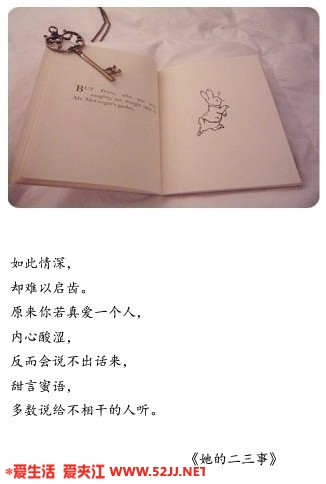 BUT Peter, who was very
naughty, ran straight away to
Mr. McGregor's garden,
如此情深，
却难以启齿。
原来你若真爱一个人，
内心酸涩，
反而会说不出话来，
甜言蜜语，
多数说给不相干的人听。
《她的二三事》
*爱生活 爱夹江 www.52JJ.NET